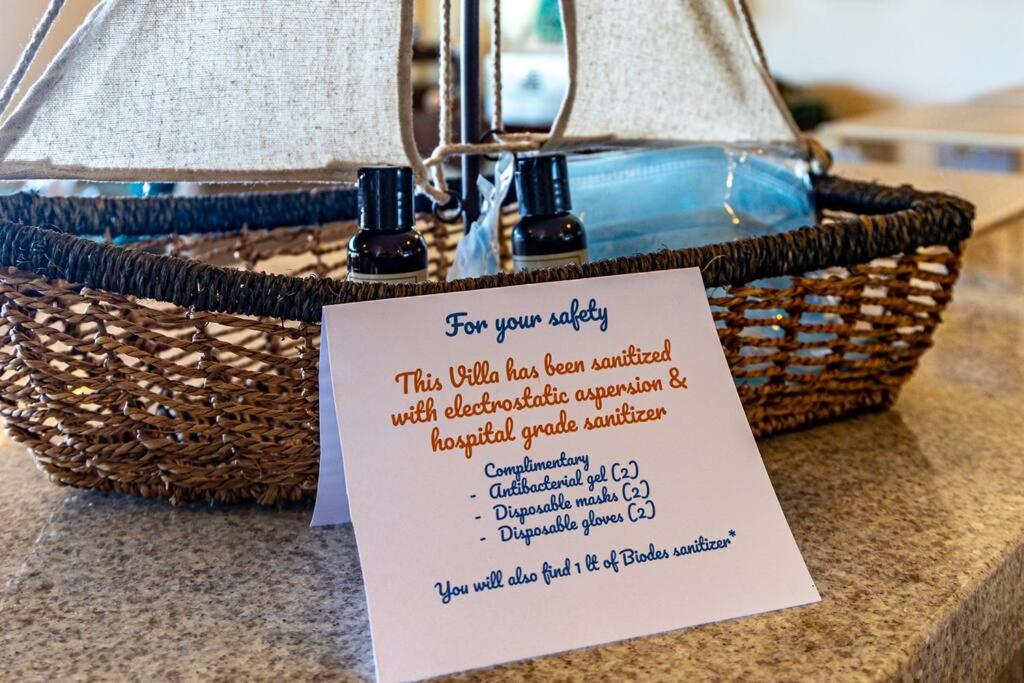 For your safety
This Villa has been sanitized
with electrostatic aspersion &
hospital grade sanitizer
Complimentary
- Antibacterial gel (2)
- Disposable masks (2)
- Disposable gloves (2)
You will also find 1 lt of Biodes sanitizer*